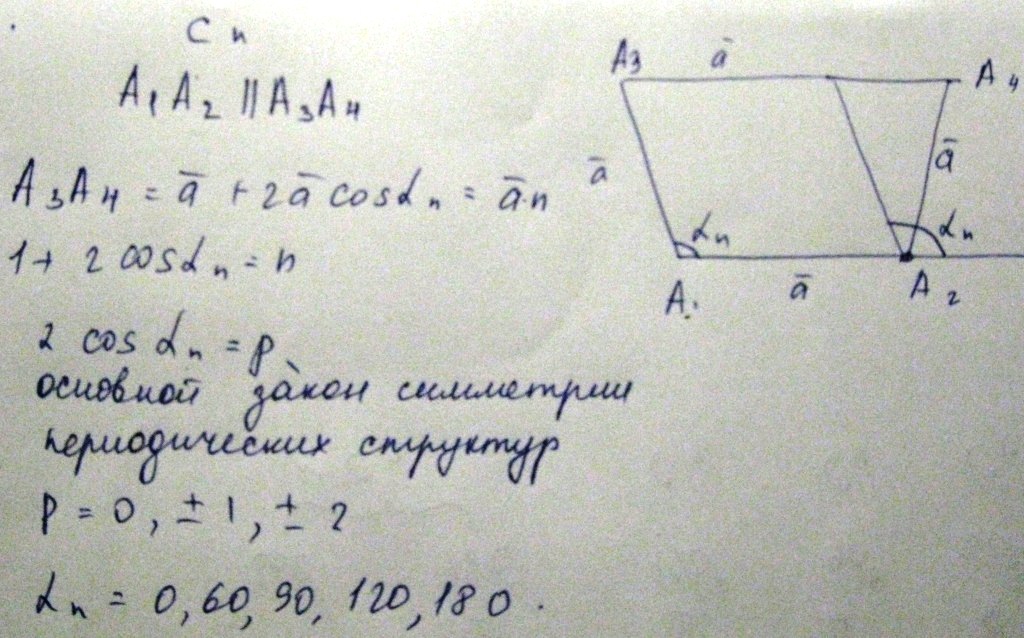 C n
A₁A₂ || A₃A₄
A₃A₄ = ā + 2ā cosαₙ = ā·n
1 + 2 cosαₙ = n
2 cos αₙ = p
основной закон симметрии
периодических структур
P = 0, ± 1, ± 2
αₙ = 0, 60, 90, 120, 180.
A₃ ā A₄
ā ā
αₙ αₙ
A₁ ā A₂